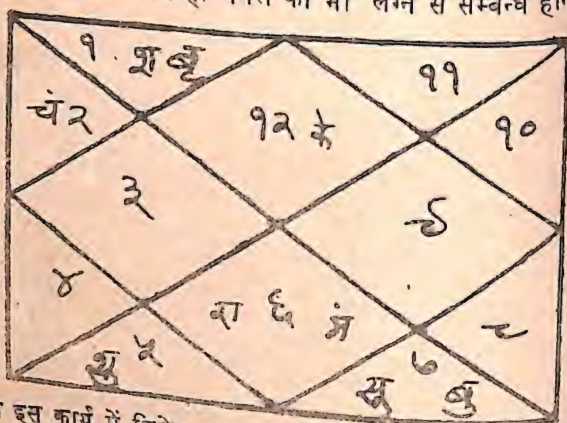 लग्न से सम्बन्ध
१ श बृ
११
चं २
१२ के
१०
३
९
४
रा ६ मं
८
शु ५
सू ७ बु
इस कार्य में